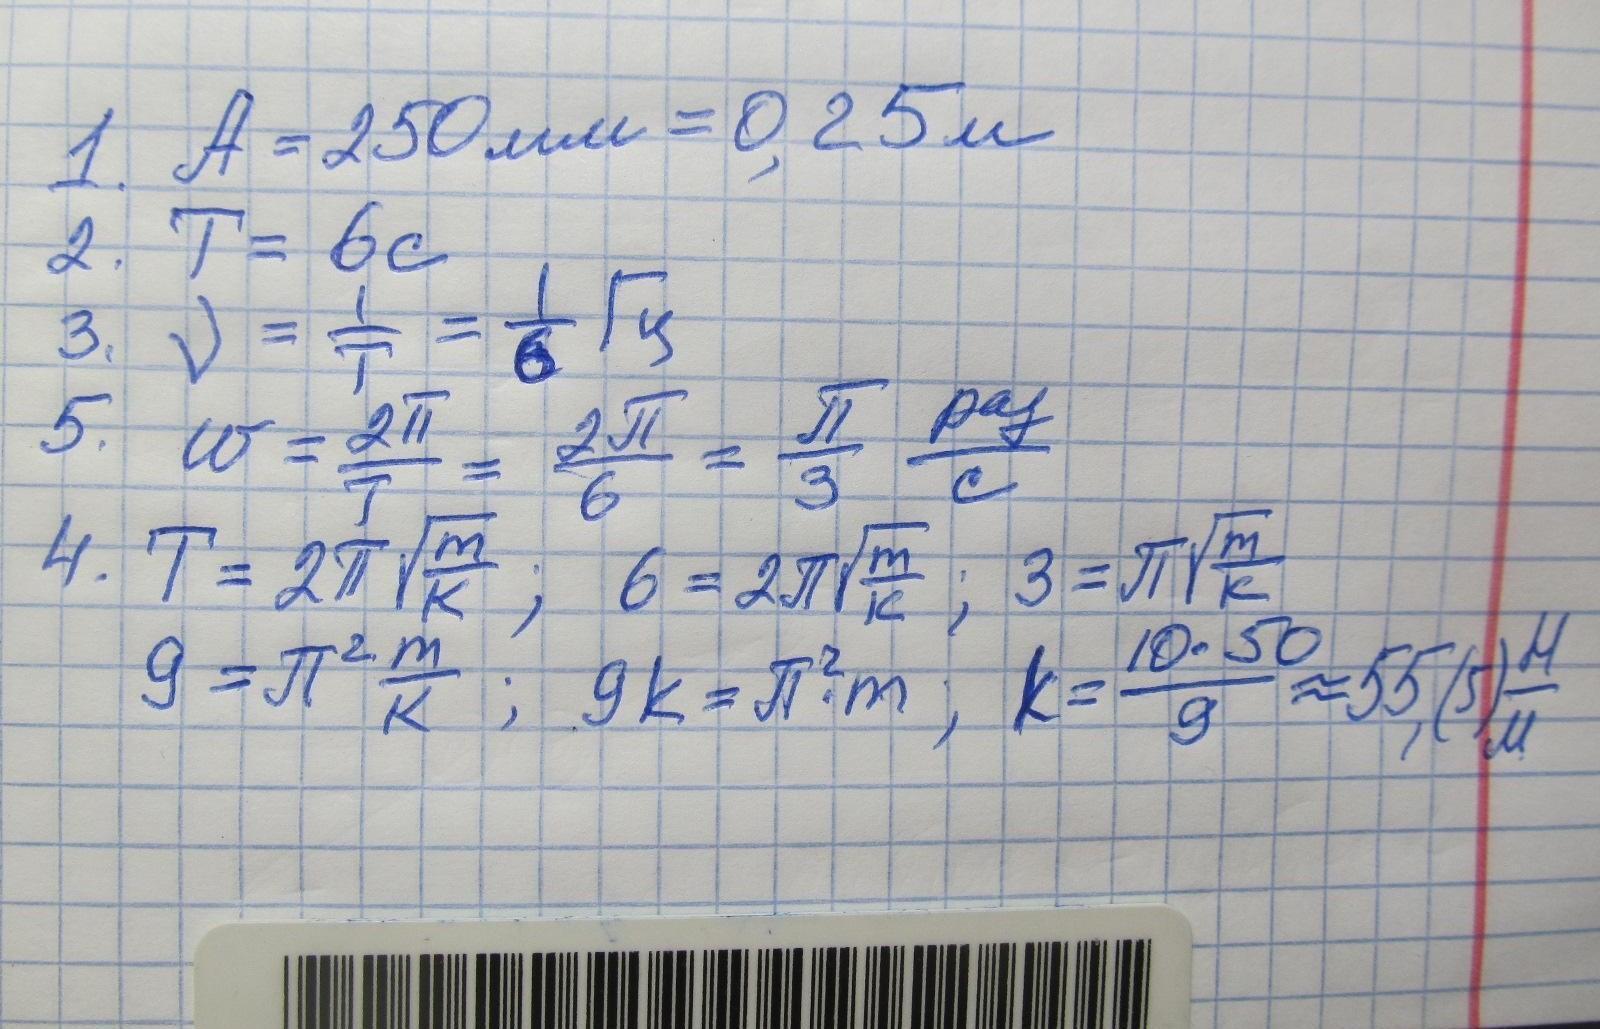 1. A = 250мм = 0,25м
2. T = 6с
3. ν = 1/T = 1/6 Гц
5. ω = 2π/T = 2π/6 = π/3 рад/с
4. T = 2π√(m/k) ; 6 = 2π√(m/k) ; 3 = π√(m/k)
9 = π²·m/k ; 9k = π²·m ; k = 10·50/9 ≈ 55,(5) Н/м